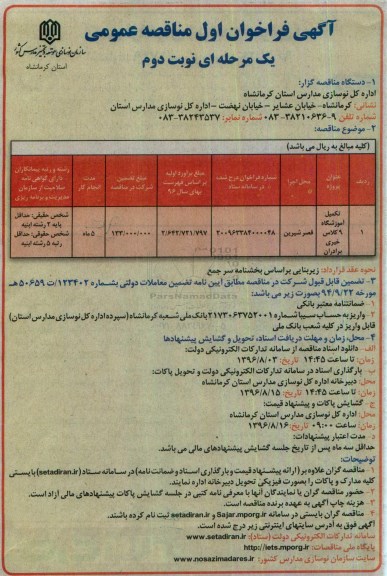 آگهی فراخوان اول مناقصه عمومی
یک مرحله ای نوبت دوم
سازمان نوسازی، توسعه و تجهیز مدارس کشور
استان کرمانشاه
۱- دستگاه مناقصه گزار:
اداره کل نوسازی مدارس استان کرمانشاه
نشانی: کرمانشاه- خیابان عشایر – خیابان نهضت – اداره کل نوسازی مدارس استان
شماره تلفن ۹-۳۸۲۱۰۶۳۶-۰۸۳ شماره نمابر: ۳۸۲۴۳۵۳۷-۰۸۳
۲- موضوع مناقصه:
(کلیه مبالغ به ریال می باشد)
ردیف
عنوان پروژه
محل اجرا
شماره فراخوان درج شده در سامانه ستاد
مبلغ برآورد اولیه بر اساس فهرست بهای سال ۹۶
مبلغ تضمین شرکت در مناقصه
مدت انجام کار
رشته و رتبه پیمانکاران دارای گواهی نامه صلاحیت از سازمان مدیریت و برنامه ریزی
۱
تکمیل آموزشگاه ۹ کلاس خیری برادران
قصر شیرین
۲۰۰۹۶۳۳۸۴۰۰۰۰۴۸
۲/۶۴۲/۷۲۱/۷۹۷
۱۳۳/۰۰۰/۰۰۰
۵ ماه
شخص حقیقی: حداقل پایه ۲ رشته ابنیه
شخص حقوقی: حداقل رتبه ۵ رشته ابنیه
نحوه عقد قرارداد: زیربنایی بر اساس بخشنامه سر جمع
۳- تضمین قابل قبول شرکت در مناقصه مطابق آیین نامه تضمین معاملات دولتی بشماره ۱۲۳۴۰۲/ت ۵۰۶۵۹ هـ
مورخه ۹۴/۹/۲۲ بصورت زیر می باشد:
۱- ضمانتنامه معتبر بانکی
۲- واریز به حساب سیبا شماره ۲۱۷۳۰۶۳۷۵۲۰۰۱ بانک ملی شعبه کرمانشاه (سپرده اداره کل نوسازی مدارس استان)
قابل واریز در کلیه شعب بانک ملی
۴- محل، زمان و مهلت دریافت اسناد، تحویل و گشایش پیشنهادها
الف - دانلود اسناد مناقصه از سامانه تدارکات الکترونیکی دولت:
زمان: تا ساعت ۱۴:۴۵ تاریخ: ۱۳۹۶/۰۸/۰۳
ب- بارگذاری اسناد در سامانه تدارکات الکترونیکی دولت و تحویل پاکات:
محل: دبیرخانه اداره کل نوسازی مدارس استان کرمانشاه
زمان: تا ساعت ۱۴:۴۵ تاریخ: ۱۳۹۶/۸/۱۵
ج- گشایش پاکات و پیشنهاد قیمت:
محل: اداره کل نوسازی مدارس استان کرمانشاه
زمان: ساعت ۰۹:۰۰ تاریخ: ۱۳۹۶/۸/۱۶
د- مدت اعتبار پیشنهادات:
حداقل سه ماه پس از تاریخ جلسه گشایش پیشنهادهای مالی می باشد.
توضیحات:
۱- مناقصه گران علاوه بر (ارائه پیشنهاد قیمت و بارگذاری اسناد و ضمانت نامه) در سامانه ستاد (setadiran.ir) بایستی
کلیه مدارک و پاکات را بصورت فیزیکی تحویل دبیرخانه اداره نمایند.
۲- حضور مناقصه گران یا نمایندگان آنها با معرفی نامه کتبی در جلسه گشایش پاکات پیشنهادهای مالی آزاد است.
۳- هزینه چاپ آگهی به عهده برنده مناقصه است.
۴- مناقصه گران بایستی در سامانه Sajar.mporg.ir و setadiran.ir ثبت نام کرده باشند.
آگهی فوق به آدرس سایتهای اینترنتی زیر درج شده است.
سامانه تدارکات الکترونیکی دولت (ستاد): www.setadiran.ir
پایگاه ملی مناقصات: http://iets.mporg.ir
سایت سازمان نوسازی مدارس کشور: www.nosazimadares.ir